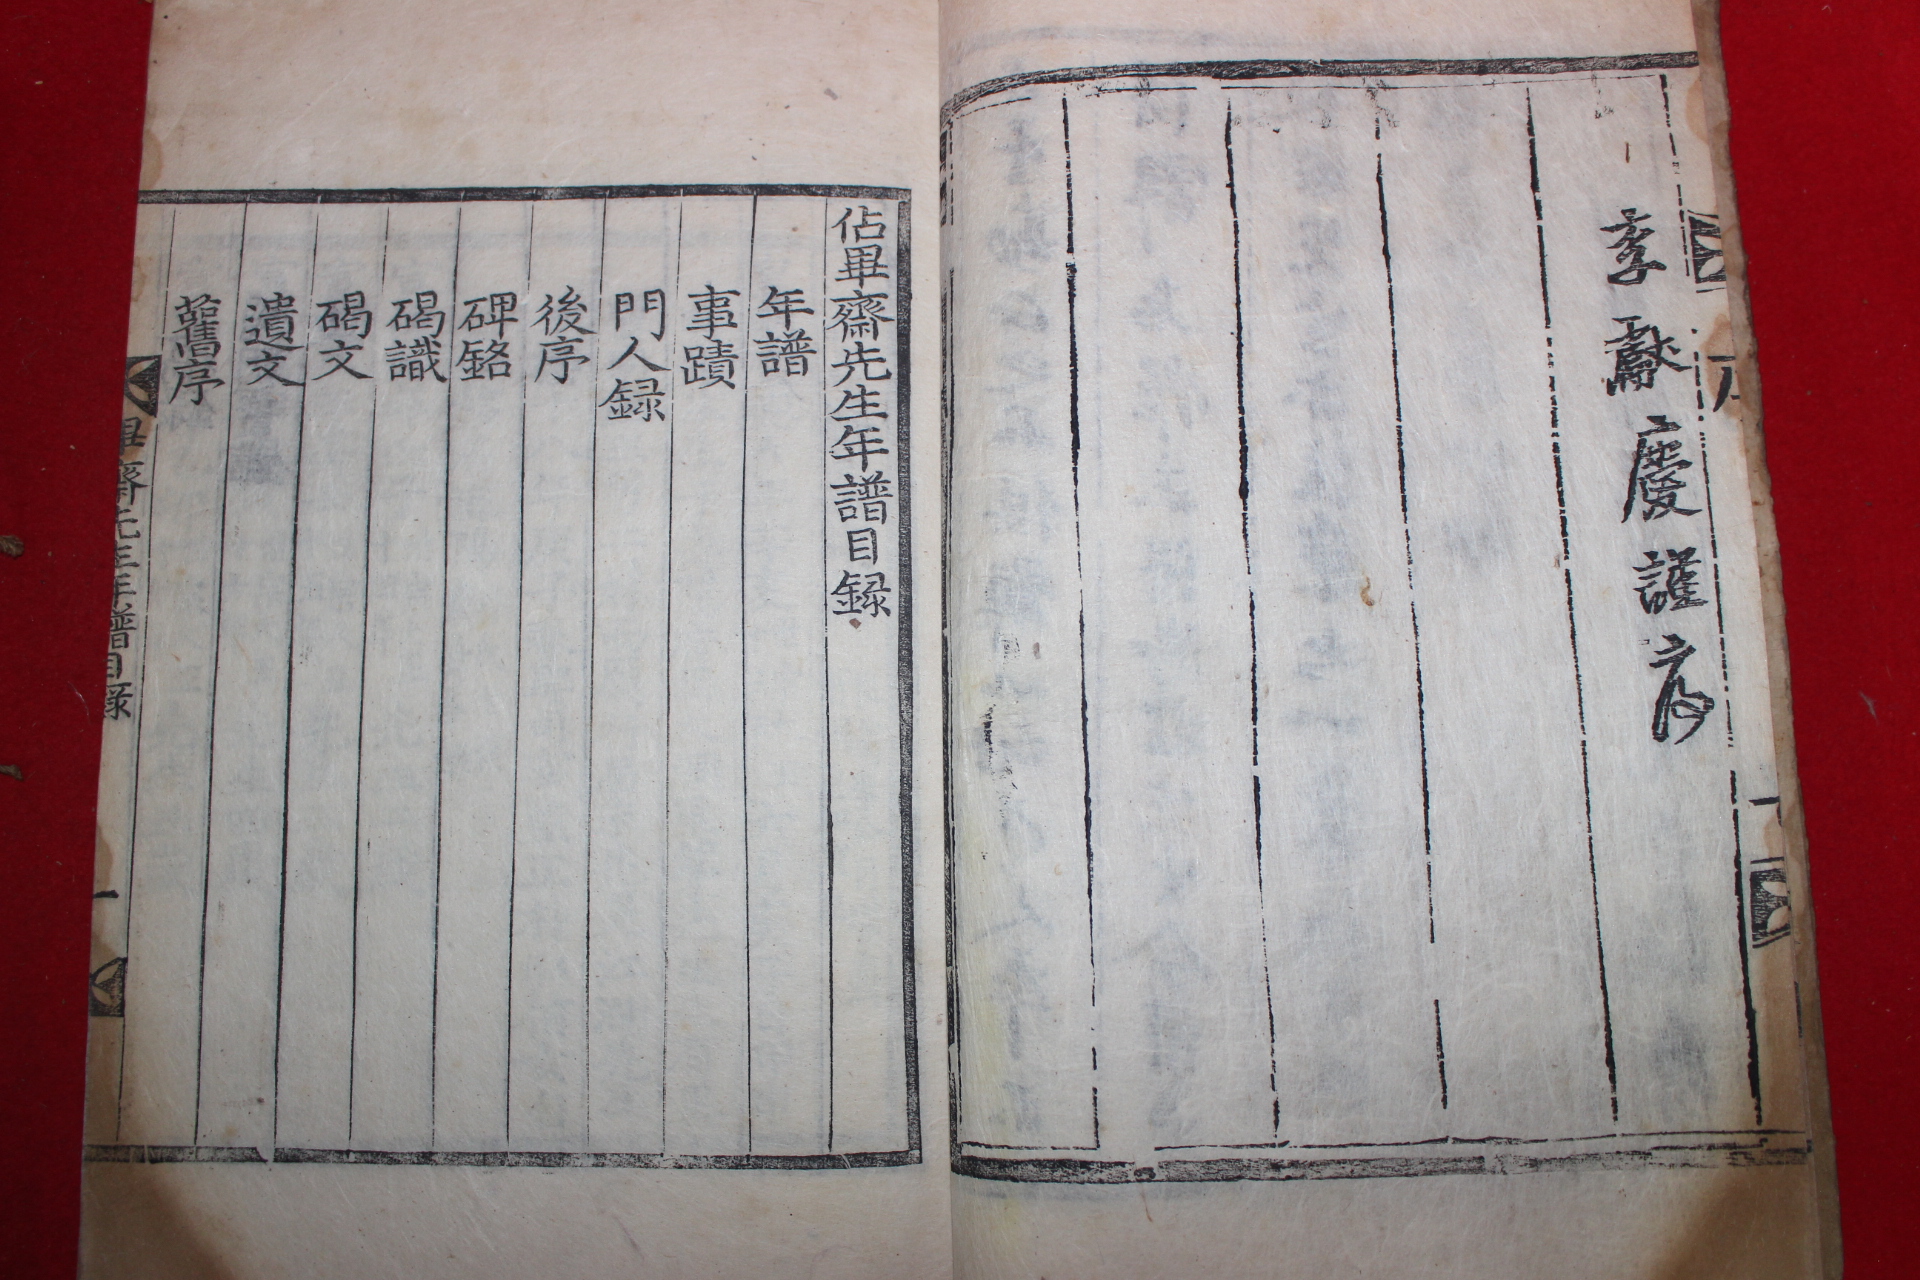 李獻慶謹序
序
佔畢齋先生年譜目録
年譜
事蹟
門人録
後序
碑銘
碣識
碣文
遺文
舊序
畢齋先生年譜目録
一